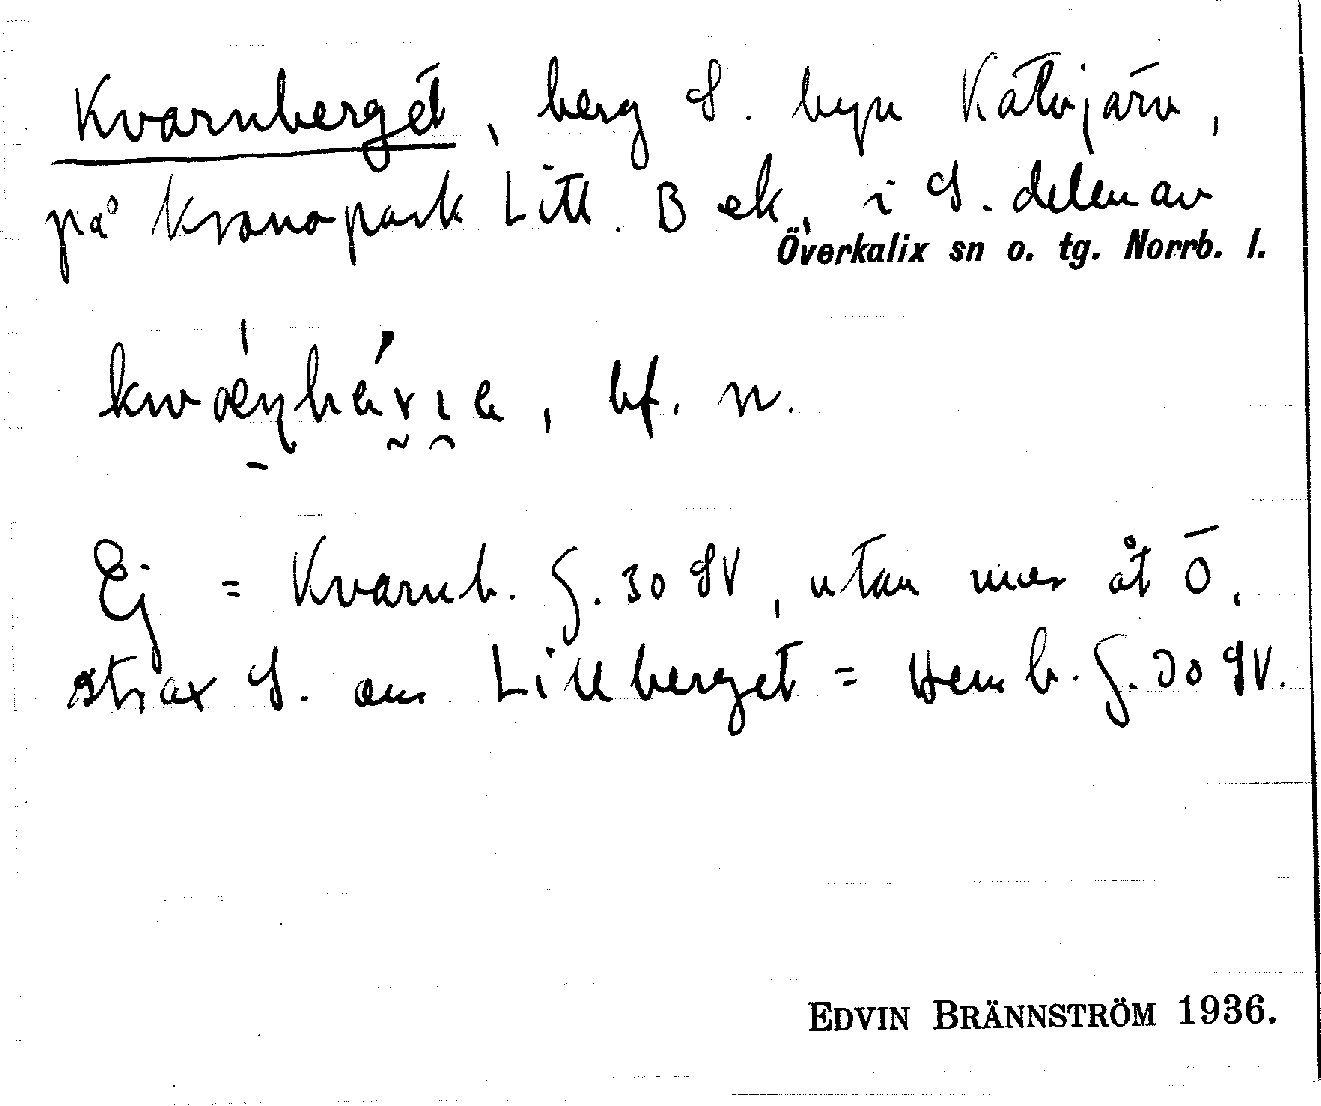 Kvarnberget, berg S. byn Kåtvjärv,
på kronopark Litt. B ek, i S. delen av
Överkalix sn o. tg. Norrb. l.
bf. n.
Ej = Kvarnb. g. 30 SV, utan mer åt Ö,
strax S. om Lillberget = Hemb. g. 30 SV.
EDVIN BRÄNNSTRÖM 1936.